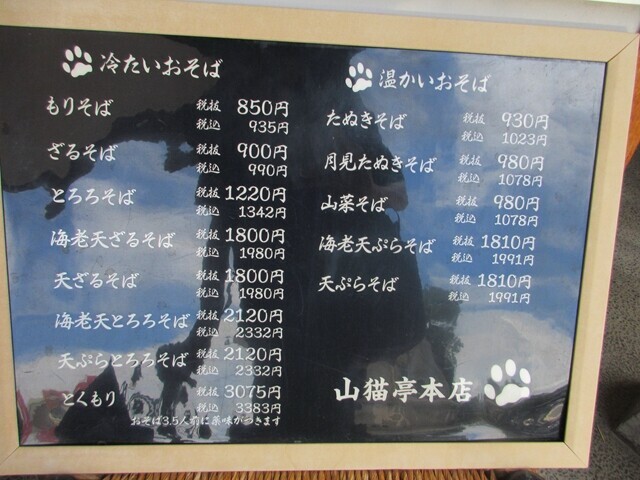 冷たいおそば
もりそば 税抜 850円
税込 935円
ざるそば 税抜 900円
税込 990円
とろろそば 税抜 1220円
税込 1342円
海老天ざるそば 税抜 1800円
税込 1980円
天ざるそば 税抜 1800円
税込 1980円
海老天とろろそば 税抜 2120円
税込 2332円
天ぷらとろろそば 税抜 2120円
税込 2332円
とくもり 税抜 3075円
税込 3383円
おそば3.5人前に薬味がつきます
温かいおそば
たぬきそば 税抜 930円
税込 1023円
月見たぬきそば 税抜 980円
税込 1078円
山菜そば 税抜 980円
税込 1078円
海老天ぷらそば 税抜 1810円
税込 1991円
天ぷらそば 税抜 1810円
税込 1991円
山猫亭本店